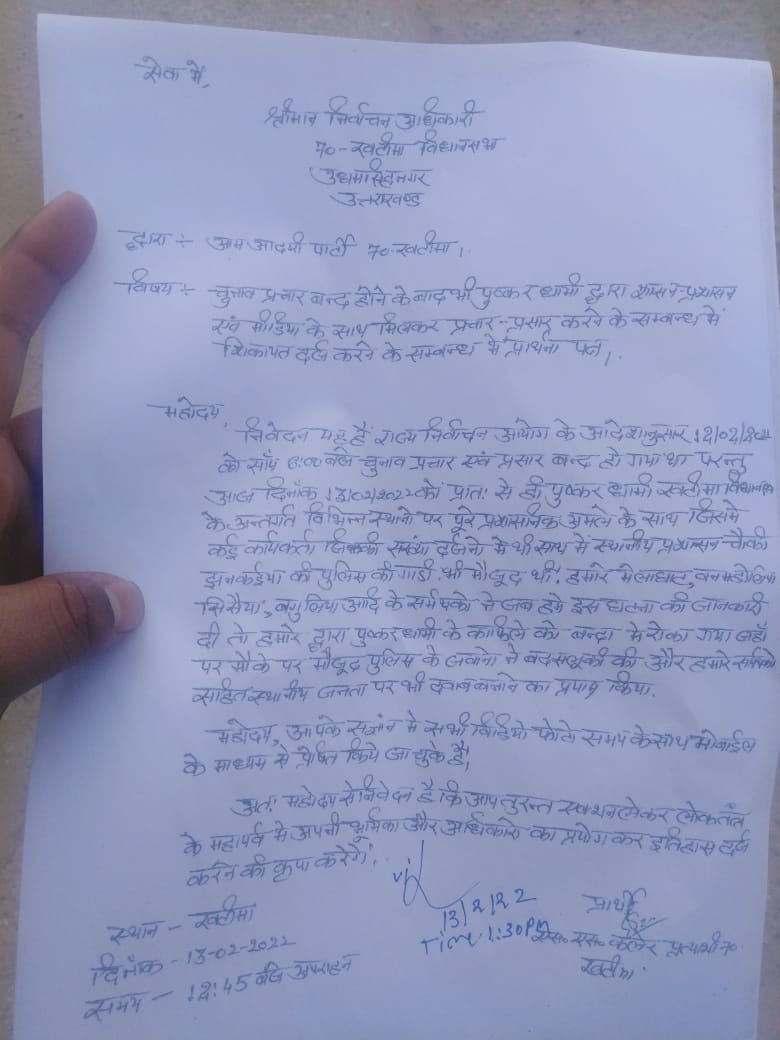 सेवा में,
श्रीमान निर्वाचन अधिकारी
70-खटीमा विधानसभा
उधमसिंहनगर
उत्तराखण्ड
द्वारा ÷ आम आदमी पार्टी 70-खटीमा।
विषय ÷ चुनाव प्रचार बन्द होने के बाद भी पुष्कर धामी द्वारा शासन-प्रशासन
एवं मीडिया के साथ मिलकर प्रचार-प्रसार करने के सम्बन्ध में
शिकायत दर्ज करने के सम्बन्ध में प्रार्थना पत्र।
महोदय,
निवेदन यह है राज्य निर्वाचन आयोग के आदेशानुसार 12/02/2022
को साँय 6:00 बजे चुनाव प्रचार एवं प्रसार बन्द हो गया था परन्तु
आज दिनाँक 13/02/2022 को प्रातः से ही पुष्कर धामी खटीमा विधानसभा
के अन्तर्गत विभिन्न स्थानो पर पूरे प्रशासनिक अमले के साथ जिसमे
कई कार्यकर्ता जिनकी संख्या दर्जनो मे थी साथ में स्थानीय प्रशासन चौकी
झनकईया की पुलिस की गाडी भी मौजूद थी। हमारे मेलाघाट,
सिसैया, बगुलिया आदि के सर्मथको ने जब हमे इस घटना की जानकारी
दी तो हमारे द्वारा पुष्कर धामी के काफिले को बन्डा मे रोका गया जहाँ
पर मौके पर मौजूद पुलिस के जवानो ने बदसलूकी की और हमारे
सहित स्थानीय जनता पर भी दवाब बनाने का प्रयास किया.
महोदय, आपके सज्ञान मे सभी विडियो फोटो समय के साथ मोबाईल
के माध्यम से प्रेषित किये जा चुके है।
अतः महोदय से निवेदन है कि आप तुरन्त एक्शन लेकर लोकतंत्र
के महापर्व मे अपनी भूमिका और अधिकारो का प्रयोग कर इतिहास दर्ज
करने की कृपा करेगें।
13/2/22
Time. 1:30 PM
प्रार्थी
एस॰ एस॰ कलेर प्रत्याशी 70-
खटीमा.
स्थान - खटीमा
दिनाँक - 13-02-2022
समय - 12:45 बजे अपराहन